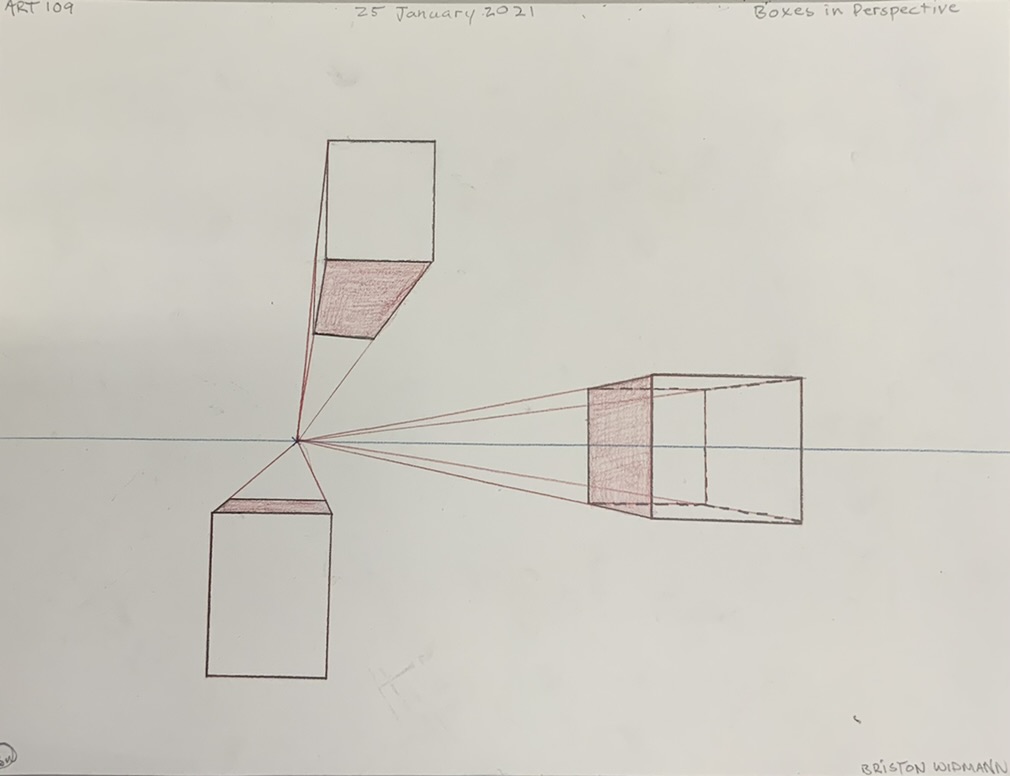 ART 109
25 January 2021
Boxes in Perspective
BRISTON WIDMANN